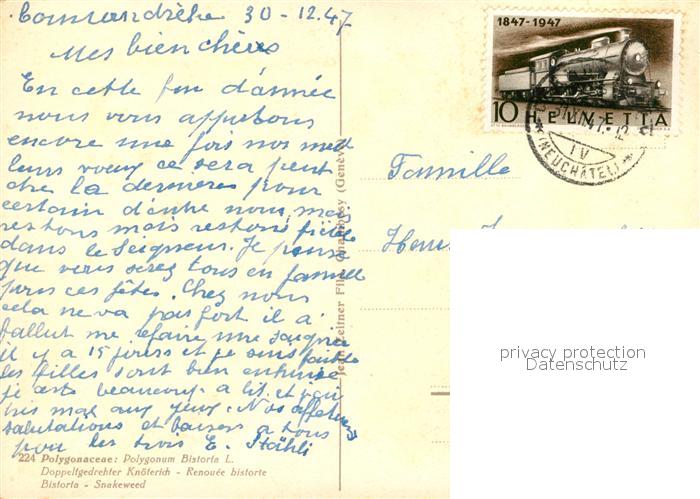 Cormondrèche 30-12.47
Mes bien chères
En cette fin d'année
nous vous apportons
encore une fois nos meil
leurs vœux ce sera peut
être la dernière pour
certain d'entre nous, mais
restons mais restons fidèle
dans le Seigneur. Je pense
que vous serez tous en famille
pour ces fêtes. Chez nous
cela ne va pas fort il a
fallut me refaire une saignée
il y a 15 jours et je suis faible
les filles sont bien
je reste beaucoup a lit et
très mal aux yeux. Nos affectueuses
salutations et baisers a tous
pour les trois E. Stähli
224 Polygonaceae: Polygonum Bistorta L.
Doppeltgedrehter Knöterich - Renouée bistorte
Bistorta - Snakeweed
Jean Zeltner Fils, Chambésy (Genève)
1847-1947
10 HELVETIA
IV
(NEUCHÂTEL)
Famille
privacy protection
Datenschutz